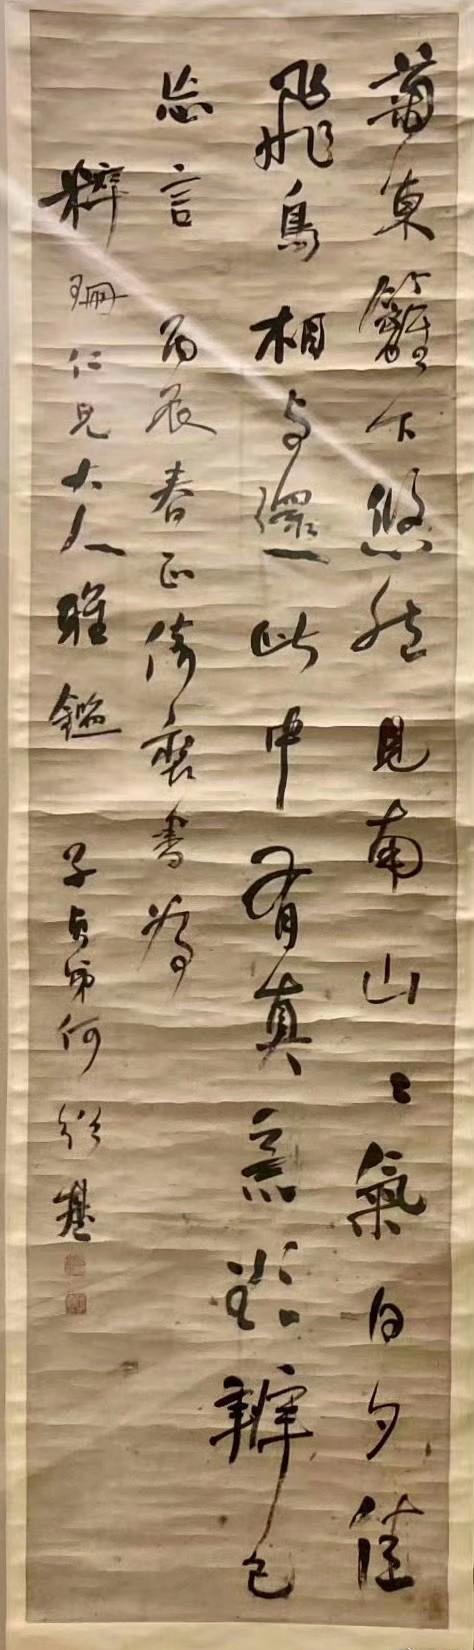 菊東籬下悠然見南山〻氣日夕佳
飛鳥相与還此中有真意欲辨已
忘言 丙辰春正倚裝書為
粹珊仁兄大人雅鑑 子貞弟何紹基